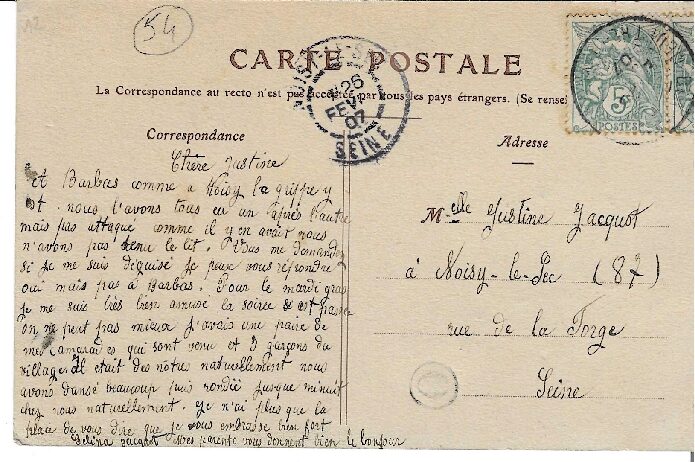 54
CARTE POSTALE
La Correspondance au recto n'est pas acceptée par tous les pays étrangers. (Se rensei
NOISY
26
FEVR
07
SEINE
5c
POSTES
Correspondance
Chère Justine
et Barbas comme a Noisy la grippe y
est. nous l'avons tous eu un après l'autre
mais pas attaque comme il y en avait nous
n'avons pas tenu le lit. Vous me demandez
si je me suis déguisé je peux vous répondre
oui mais pas à Barbas. Pour le mardi gras
je me suis très bien amusé la soirée s est
on ne peut pas mieux J'avais une paire de
mes camarades qui sont venu et 3 garçons du
village Il était des notre naturellement nous
avons dansé beaucoup puis jusque minuit
chez nous naturellement. Je n'ai plus que la
place de vous dire que je vous embrasse bien fort
Jacquot parents vous donnent bien le bonjour
Adresse
Melle Justine Jacquot
à Noisy-le-Sec (87)
rue de la Forge
Seine